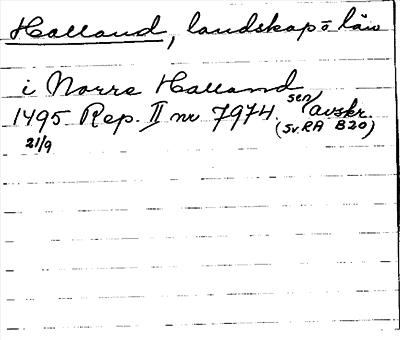 Halland, landskap o län
i Norre Halland
1495 Rep. II nr 7974. sen avskr.
21/9 (Sv. RA B20)